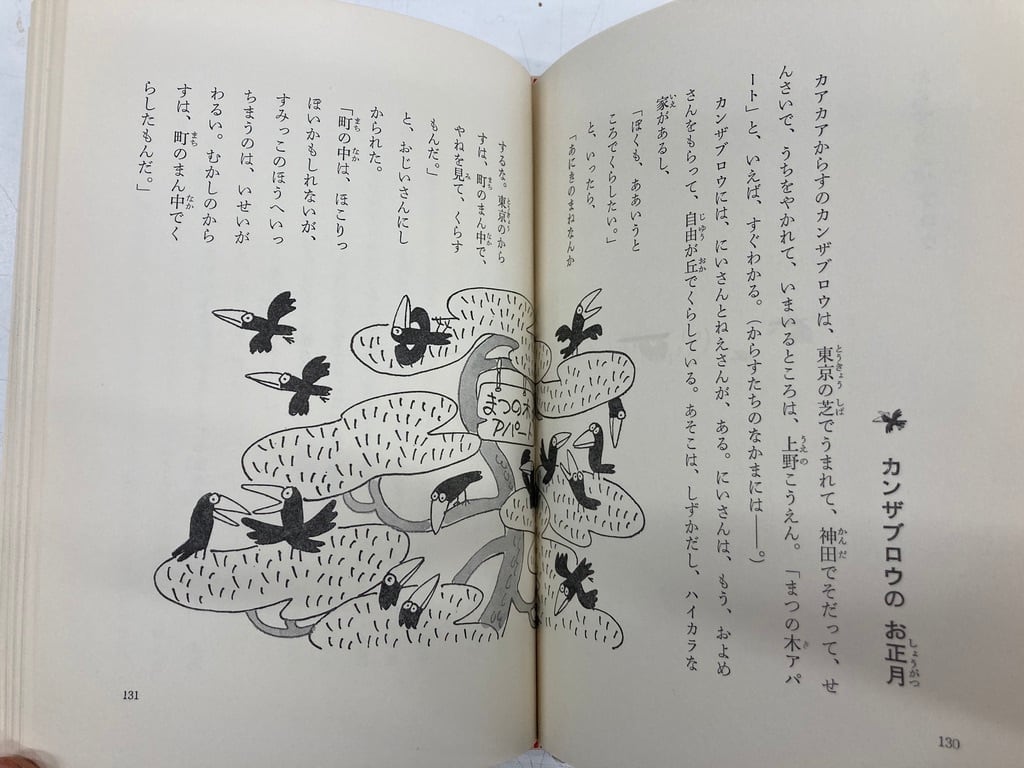 カンザブロウの お正月
しょうがつ
カアカアからすのカンザブロウは、東京の芝でうまれて、神田でそだって、せ
とうきょう しば かんだ
んさいで、うちをやかれて、いまいるところは、上野こうえん。「まつの木アパ
うえの き
ート」と、いえば、すぐわかる。(からすたちのなかまには――。)
カンザブロウには、にいさんとねえさんが、ある。にいさんは、もう、およめ
さんをもらって、自由が丘でくらしている。あそこは、しずかだし、ハイカラな
じゆう おか
家があるし、
いえ
「ぼくも、ああいうと
ころでくらしたい。」
と、いったら、
「あにきのまねなんか
130
するな。東京のから
とうきょう
すは、町のまん中で、
まち なか
やねを見て、くらす
み
もんだ。」
と、おじいさんにし
かられた。
「町の中は、ほこりっ
まち なか
ぽいかもしれないが、
すみっこのほうへいっ
ちまうのは、いせいが
わるい。むかしのから
すは、町のまん中でく
まち なか
らしたもんだ。」
まつの木
アパート
131